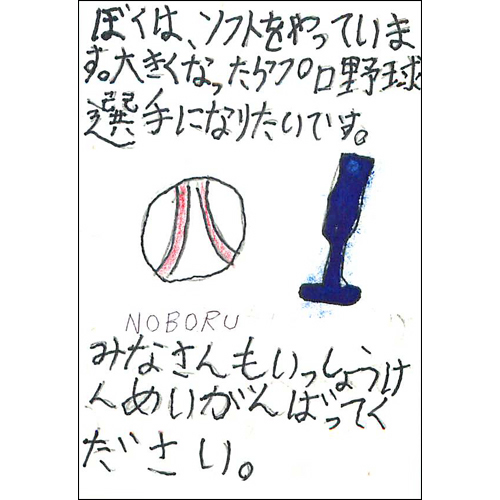 ぼくは、ソフトをやっていま
す。大きくなったらプロ野球
選手になりたいです。
NOBORU
みなさんもいっしょうけ
んめいがんばってく
ださい。